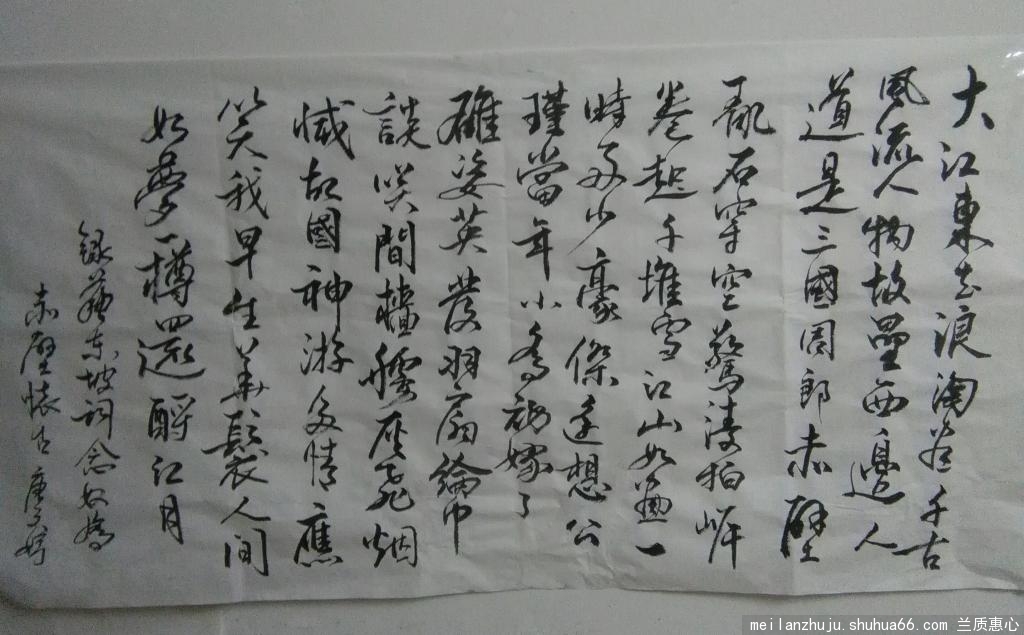 大江東去浪淘盡千古
風流人物故壘西邊人
道是三國周郎赤壁
亂石穿空驚濤拍岸
卷起千堆雪江山如畫一
時多少豪傑遥想公
瑾當年小喬初嫁了
雄姿英發羽扇綸巾
談笑間檣艣灰飛烟
滅故國神游多情應
笑我早生華髮人間
如夢一樽還酹江月
録蘇東坡詞念奴嬌
赤壁懷古
meilanzhuju.shuhua66.com 兰质惠心